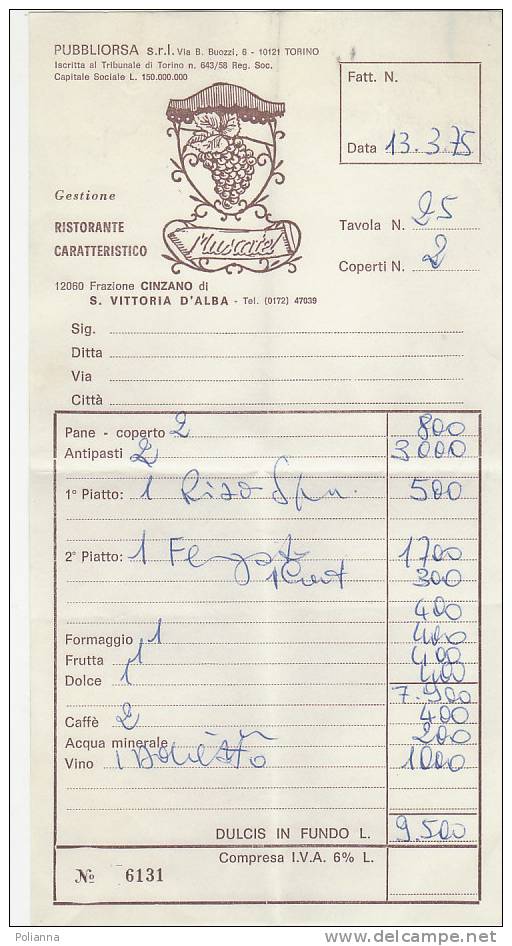 PUBBLIORSA s.r.l. Via B. Buozzi, 6 - 10121 TORINO
Iscritta al Tribunale di Torino n. 643/58 Reg. Soc.
Capitale Sociale L. 150.000.000
Fatt. N.
Data 13.3.75
Gestione
RISTORANTE
CARATTERISTICO
Muscatel
Tavola N. 25
Coperti N. 2
12060 Frazione CINZANO di
S. VITTORIA D'ALBA - Tel. (0172) 47039
Sig.
Ditta
Via
Città
Pane - coperto 2 800
Antipasti 2 3000
1° Piatto: 1 Riso 500
2° Piatto: 1 1700
300
400
Formaggio 1 400
Frutta 1 400
Dolce 1 400
7.900
Caffè 2 400
Acqua minerale 200
Vino 1 1000
DULCIS IN FUNDO L. 9.500
Compresa I.V.A. 6% L.
№ 6131
Polianna
www.delcampe.net